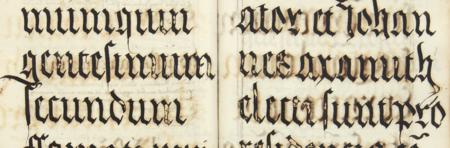 mumquin
gentesimum
secundum
ator et Johan
nes axamuth
electi sunt pro